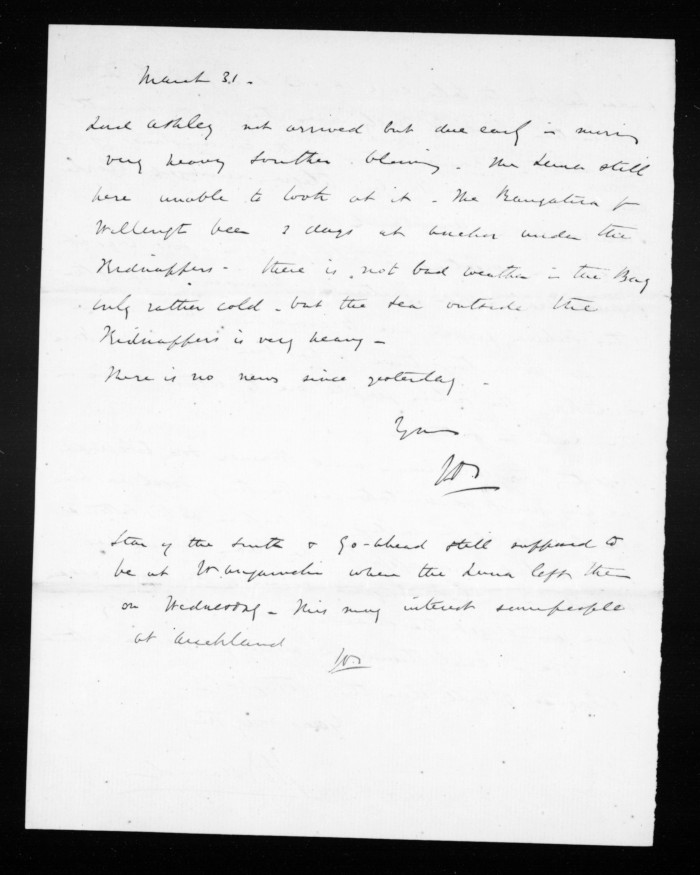 March 31 -
Lord Ashley not arrived but due early in morning
very heavy Souther blowing. The Luna still
here unable to look at it - The Rangatira fr
Wellingt been 2 days at anchor under the
Kidnappers - there is not bad weather in the Bay
only rather cold - but the sea outside the
Kidnappers is very heavy -
There is no news since yesterday -
Yrs
Star of the South & Go-ahead still supposed to
be at when the Luna left then
on Wednesday - This may interest some people
at Auckland